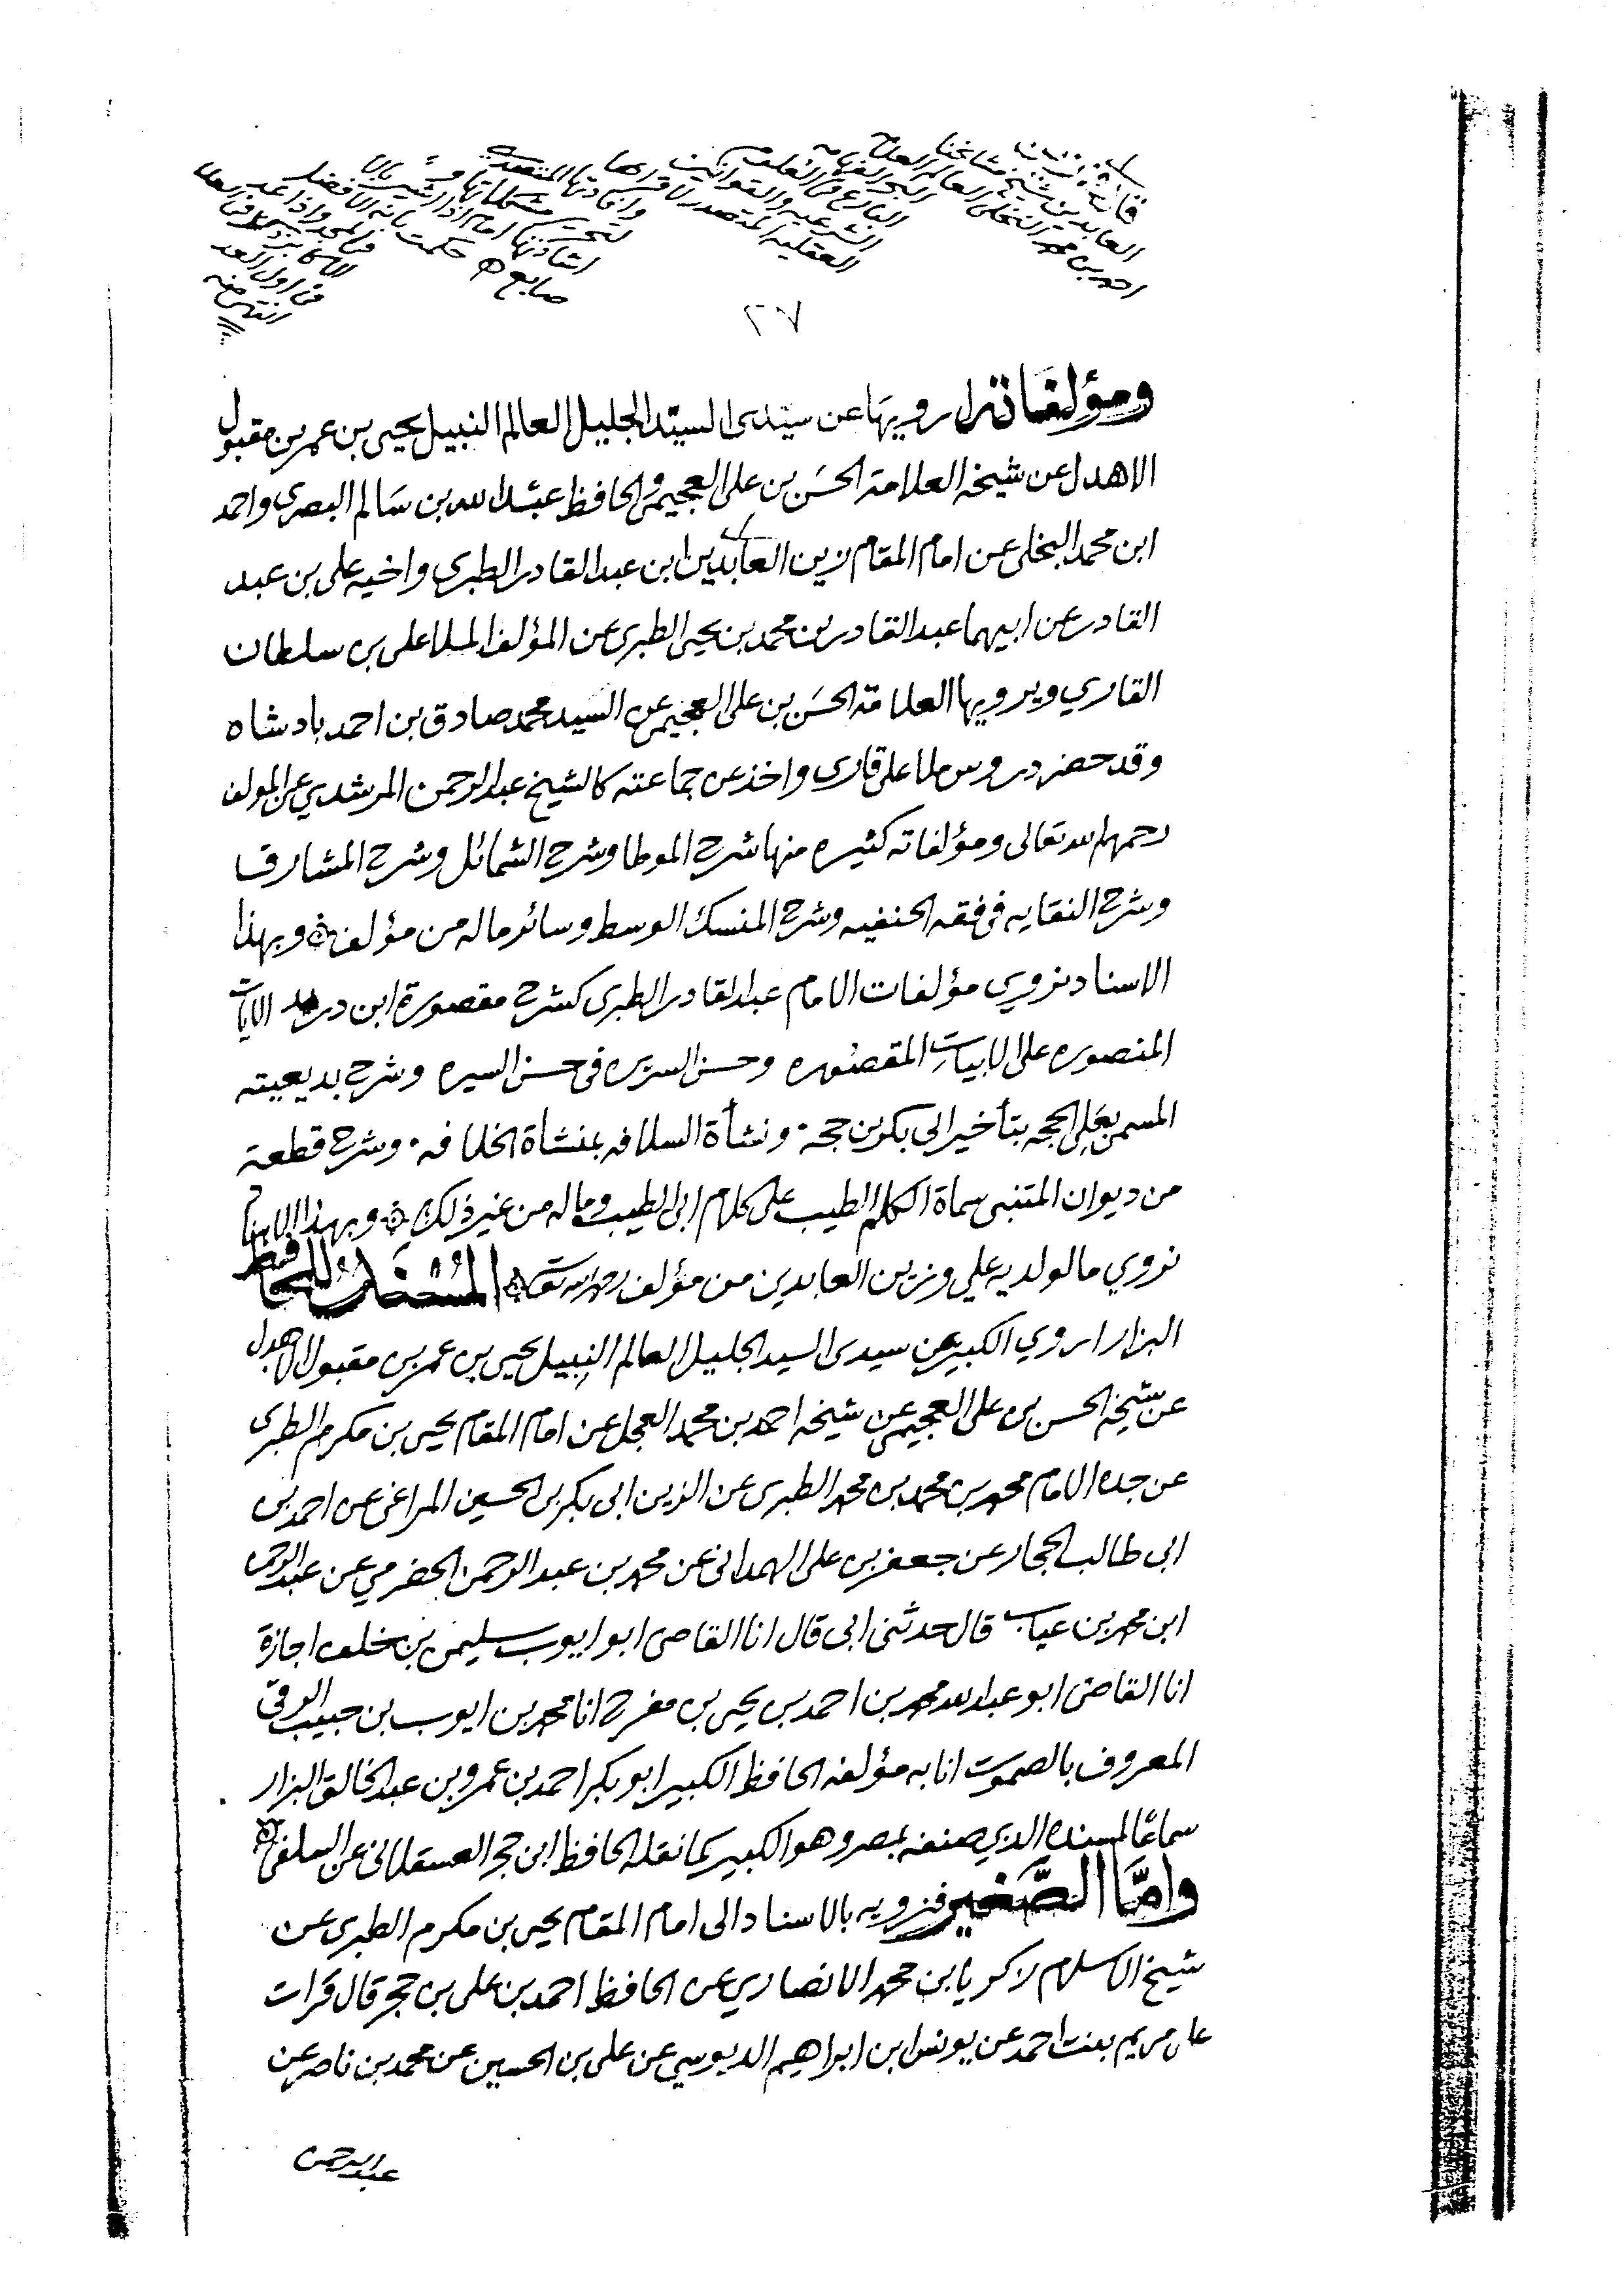 العابدين شيخ مشايخنا
احمد بن محمد النخلي العالم العلامه
البحر الفهامه
البارع في العلوم
الشرعيه والقوانين
العقليه المتصدر لاقرائها
٢٧
ومؤلفاته ارويها عن سيدى السيد الجليل العالم النبيل يحيى بن عمر بن مقبول
الاهدل عن شيخه العلامة الحسن بن على العجيمى والحافظ عبد الله بن سالم البصرى واحمد
ابن محمد النخلى عن امام المقام زين العابدين ابن عبد القادر الطبرى واخيه على بن عبد
القادر عن ابيهما عبد القادر بن محمد بن يحيى الطبرى عن المؤلف الملا على بن سلطان
القاري ويرويها العلامة الحسن بن على العجيمى عن السيد محمد صادق بن احمد بادشاه
وقد حضر دروس ملا على قارى واخذ عن جماعته كالشيخ عبد الرحمن المرشدي عن المولف
رحمهم الله تعالى ومؤلفاته كثيره منها شرح الموطا وشرح الشمائل وشرح المشارق
وشرح النقايه فى فقه الحنفيه وشرح المنسك الوسط وسائر ماله من مؤلف وبهذا
الاسناد نروي مؤلفات الامام عبد القادر الطبرى كشرح مقصورة ابن دريد الايات
المنصوره على الابيات المقصوره وحسن السريره فى حسن السيره وشرح بديعيته
المسمى بعلى الحجه بتأخير ابى بكر بن حجه . ونشأة السلافه بمنشاة الخلافه . وشرح قطعة
من ديوان المتنبى سماه الكلم الطيب على كلام ابى الطيب وماله من غير ذلك وبهذا الاسناد
نروي ما لولديه علي وزين العابدين من مؤلف رحمهم الله تعالى المسند للحافظ
البزار اروي الكبير عن سيدى السيد الجليل العالم النبيل يحيى بن عمر بن مقبول الاهدل
عن شيخه الحسن بن على العجيمى عن شيخه احمد بن محمد العجل عن امام المقام يحيى بن مكرم الطبرى
عن جده الامام محمد بن محمد بن محمد الطبرى عن الزين ابى بكر بن الحسين المراغى عن احمد بن
ابى طالب الحجار عن جعفر بن على الهمدانى عن محمد بن عبد الرحمن الحضرمي عن عبد الرحمن
ابن محمد بن عتاب قال حدثنى ابى قال انا القاضى ابو ايوب سليمن بن خلف اجازة
انا القاضى ابو عبد الله محمد بن احمد بن يحيى بن مفرح انا محمد بن ايوب بن حبيب الرقى
المعروف بالصموت انا به مؤلفه الحافظ الكبير ابو بكر احمد بن عمرو بن عبد الخالق البزار
سماعًا لمسنده الذي صنفه بمصر وهو الكبير كما نقله الحافظ ابن حجر العسقلانى عن السلفى
وامَّا الصَّغير فنرويه بالاسناد الى امام المقام يحيى بن مكرم الطبرى عن
شيخ الاسلام زكريا بن محمد الانصاري عن الحافظ احمد بن على بن حجر قال قرات
على مريم بنت احمد عن يونس ابن ابراهيم الدبوسي عن على بن الحسين عن محمد بن ناصر عن
عبد الرحمن